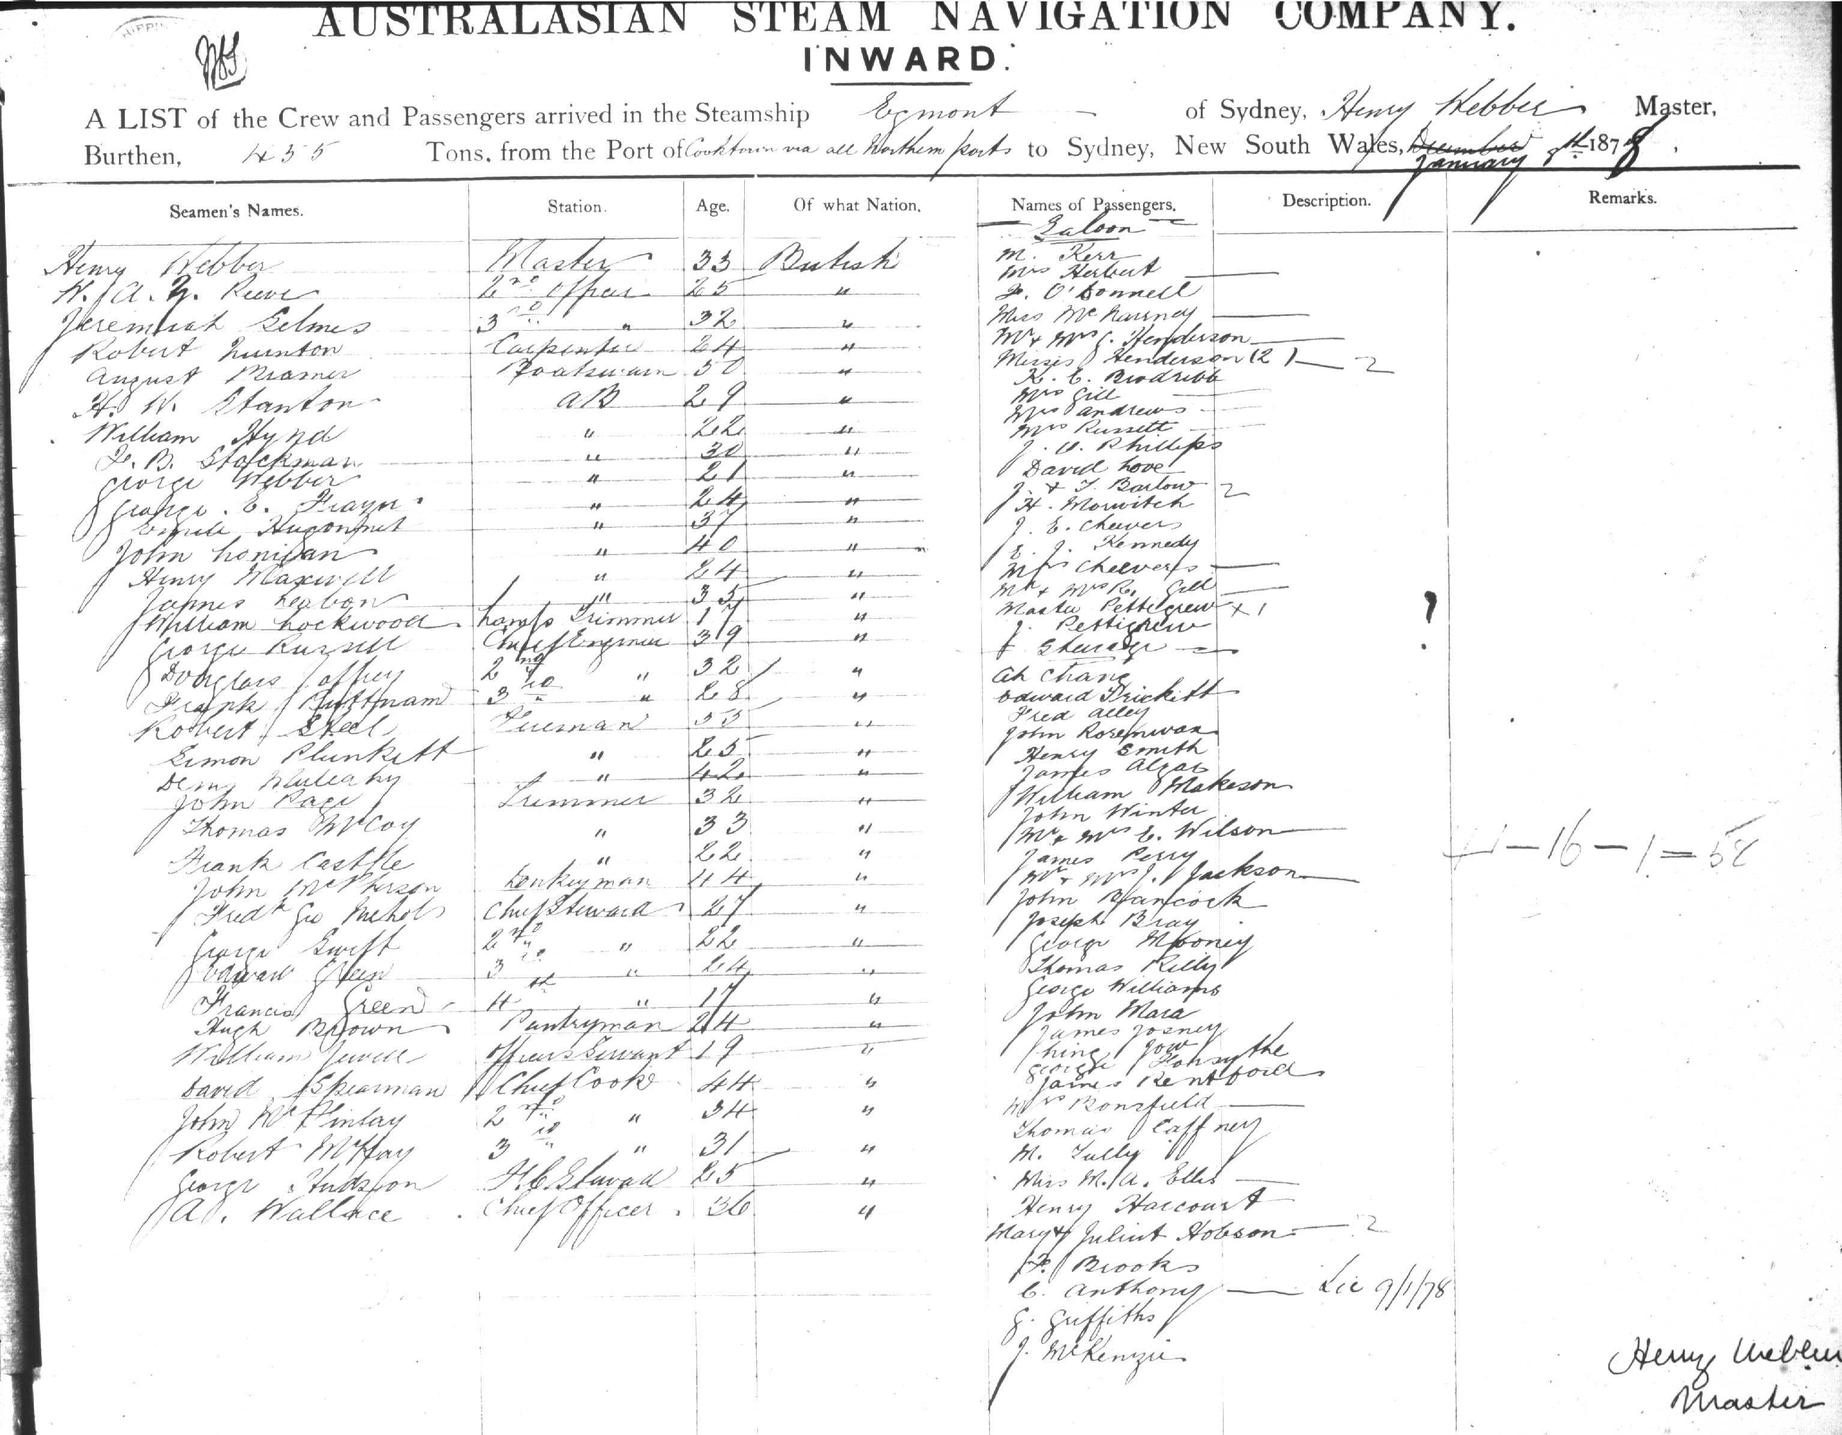 AUSTRALASIAN STEAM NAVIGATION COMPANY.
INWARD.
A LIST of the Crew and Passengers arrived in the Steamship Egmont of Sydney, Henry Webber Master,
Burthen, 455 Tons, from the Port of Cooktown via all Northern ports to Sydney, New South Wales, December January 8th 1878.
Seamen's Names. Station. Age. Of what Nation. Names of Passengers. Description. Remarks.
Saloon
Henry Webber Master 33 British M. Kerr
Mrs Herbert
W. A. Y. Reeve 2nd Officer 25 " F. O'Donnell
Jeremiah Selmes 3rd " 32 " Miss McKarney
Mr & Mrs J. Henderson
Robert Thurnton Carpenter 24 " Misses Henderson (2) 2
August Bramer Boatswain 50 " K. E. Brodribb
Mrs Gill
H. W. Stanton AB 29 " Mrs Andrews
Mrs Russell
William Hynd " 22 " J. U. Phillips
F. B. Stockman " 30 " David Love
George Webber " 21 " J. & T. Barlow 2
George E. Frayn " 24 " H. Morwitch
Emile Hugonnet " 37 " J. E. Cheevers
John Lonigan " 40 " E. J. Kennedy
Henry Maxwell " 24 " Mrs Cheevers
James " 35 " Mr & Mrs R. Gill
William Lockwood Lamp Trimmer 17 " Master Pettigrew x 1
George Russell Chief Engineer 39 " J. Pettigrew
Steerage
Douglas Caffrey 2nd " 32 " Ah Chang
Frank Puttmam 3rd " 28 " Edward Prickett
Robert Steel Fireman 55 " Fred Alley
John Rosenwax
Simon Plunkett " 25 " Henry Smith
Deny Mulcahy " 42 " James Algar
John Page Trimmer 32 " William Makeson
John Winter
Thomas McCoy " 33 " Mr & Mrs E. Wilson
Frank Castle " 22 " James Perry
John McPherson Donkeyman 44 " Mr & Mrs J. Jackson
- 16 - 1 = 58
Fredk Geo Nichols Chief Steward 27 " John Hancock
Joseph Bray
George Swift 2nd " 22 " George Mooney
Edward Green 3rd " 24 " Thomas Kelly
George Williams
Francis Green 4th " 17 " John Mara
Hugh Brown Pantryman 24 " James
William Jewell Officers Servant 19 " Gow
George Forsythe
David Spearman Chief Cook 44 " James Rentford
John McFinlay 2nd " 34 " Mrs Bonsfield
Thomas Caffney
Robert McHay 3rd " 31 " M. Tully
George Hudson F.C. Steward 25 " Miss M. A. Ellis
A. Wallace Chief Officer 36 " Henry Harcourt
Mary & Juliut Hobson 2
F. Brooks
C. Anthony Lic 9/1/78
G. Griffiths
J. McKenzie
Henry Webber
Master